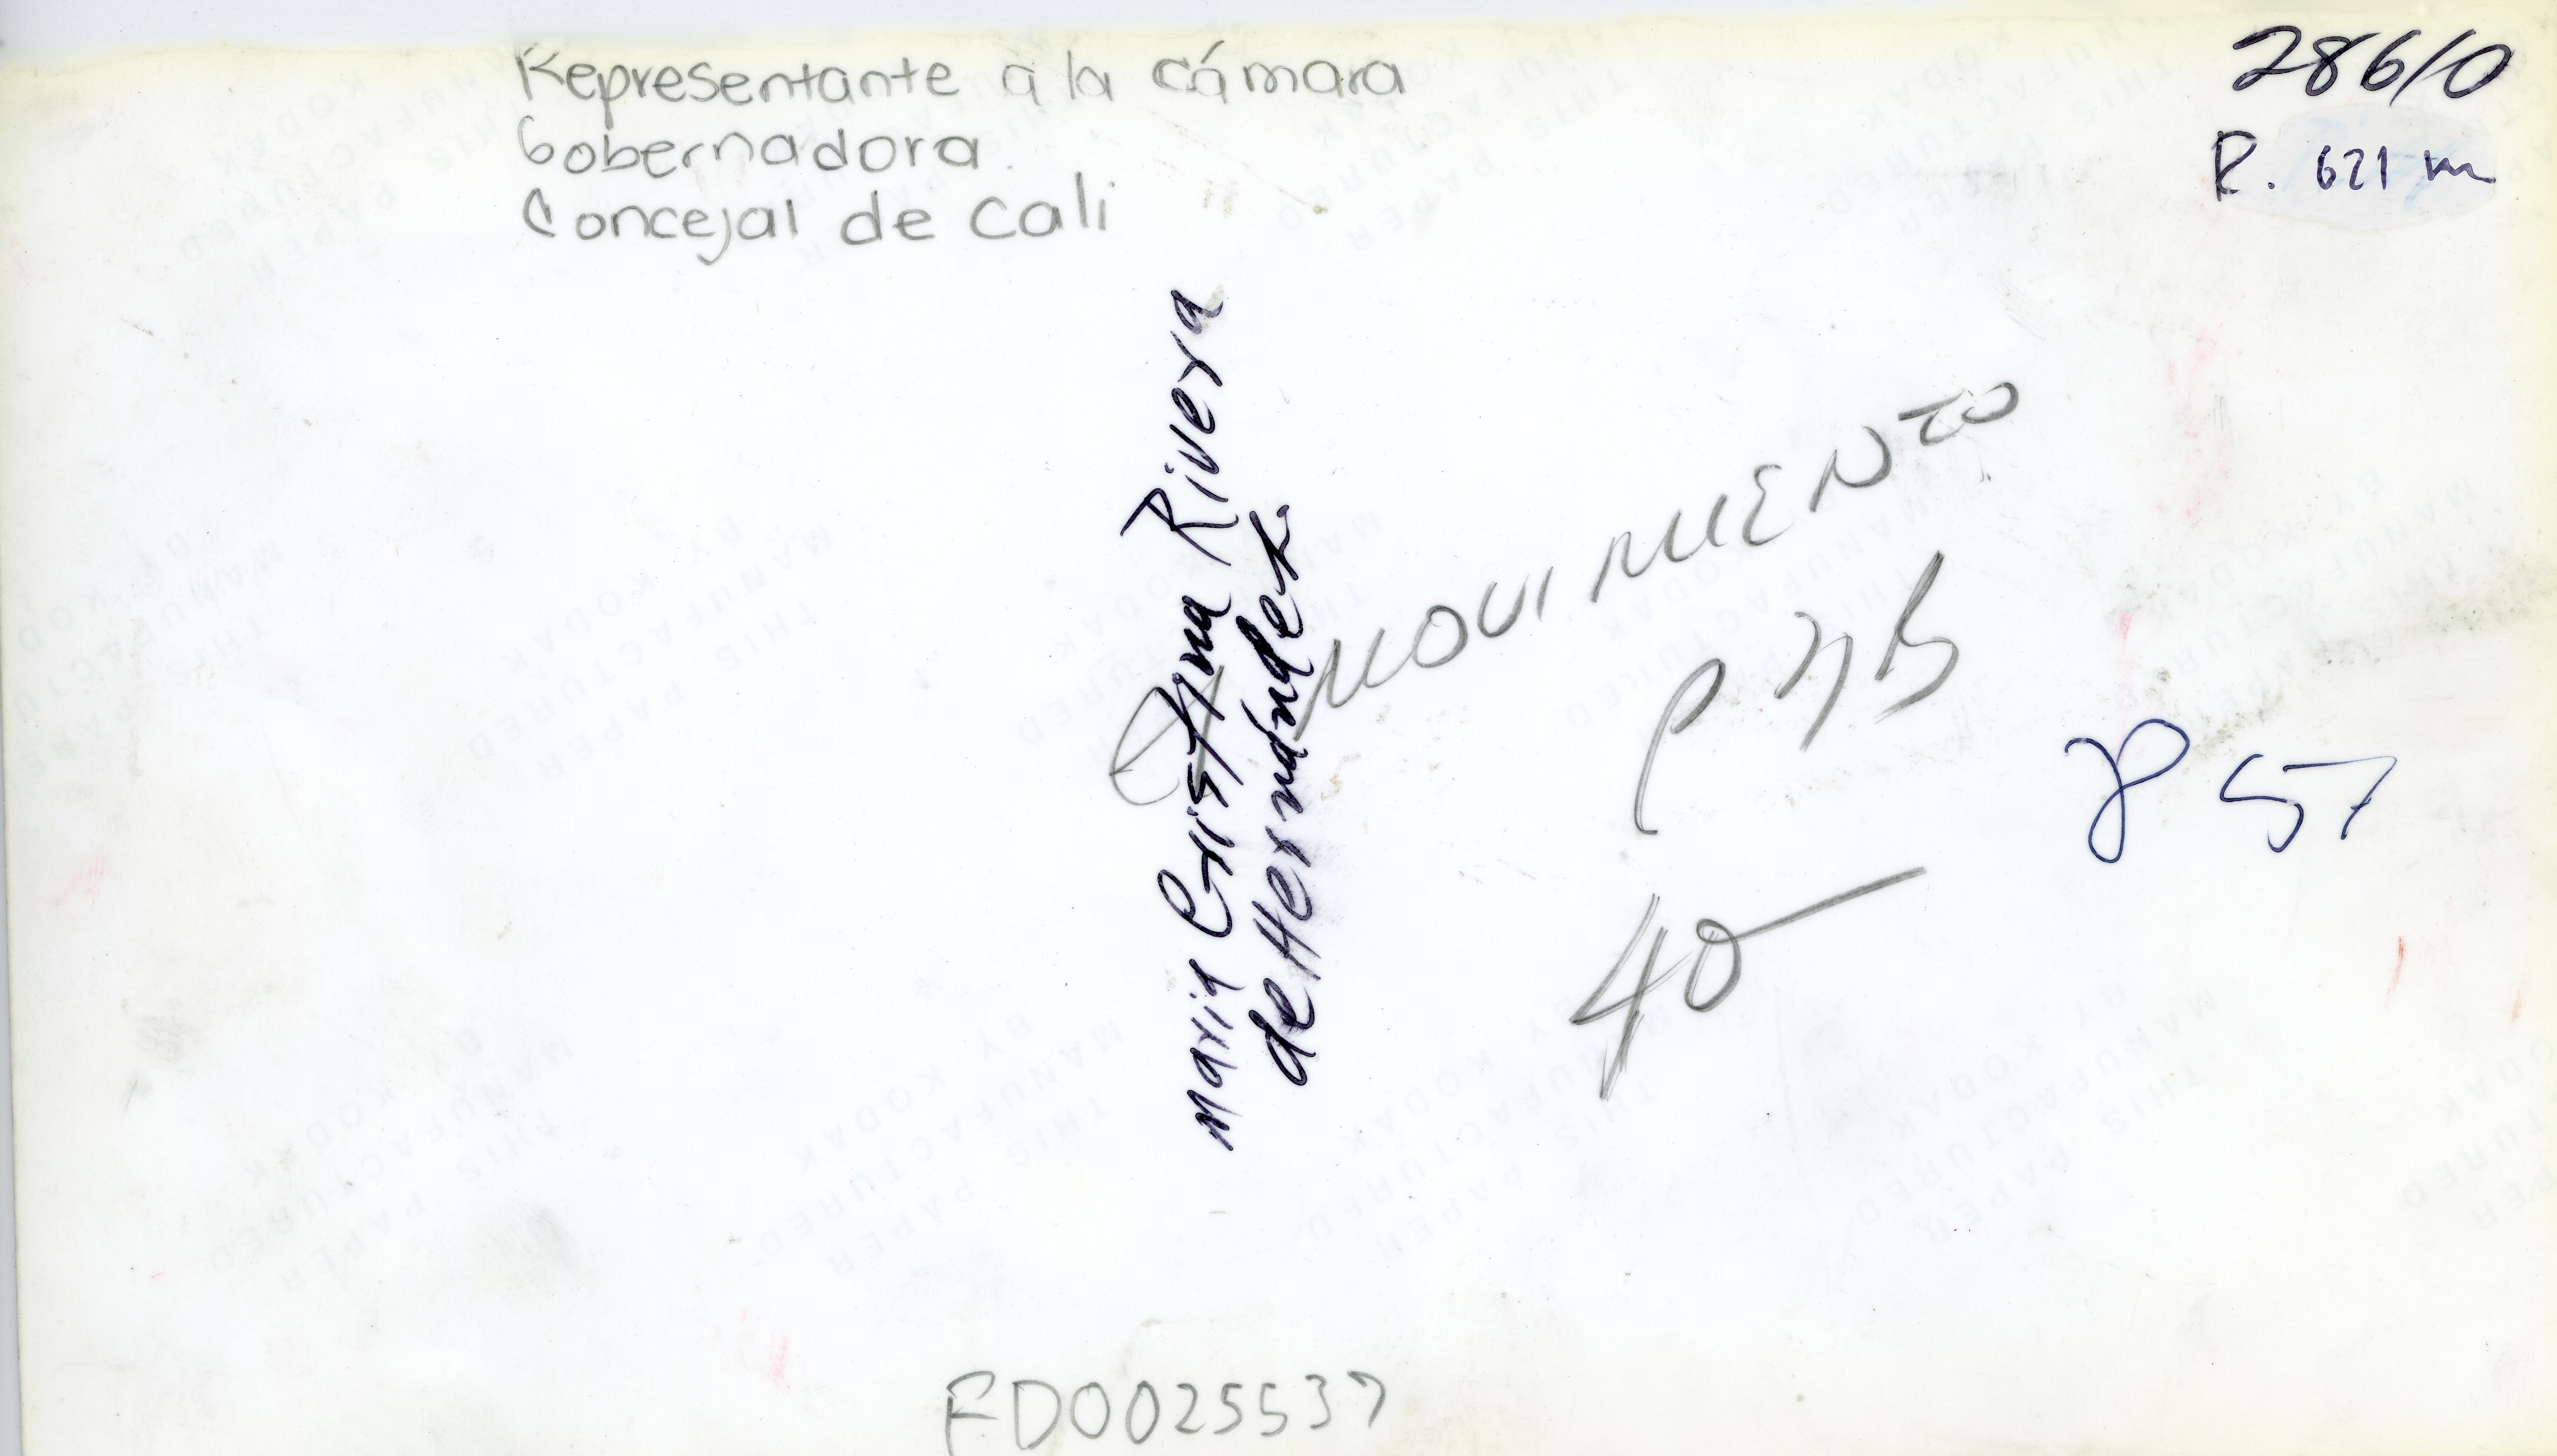 Representante a la cámara
Gobernadora
Concejal de Cali
28610
R. 621 m
Maria Cristina Rivera
de Hernández
MOVIMIENTO
40
P 57
FD0025537
THIS PAPER
MANUFACTURED
BY KODAK